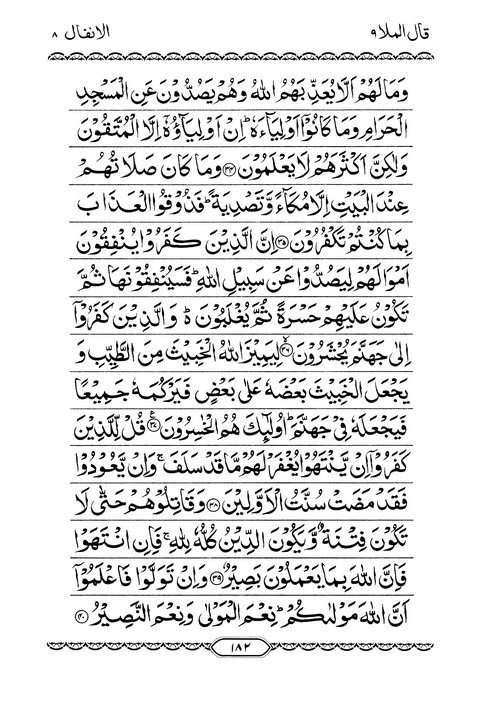 قال الملا ٩ الانفال ٨
وَمَا لَهُمْ اَلَّا يُعَذِّبَهُمُ اللّٰهُ وَهُمْ يَصُدُّوْنَ عَنِ الْمَسْجِدِ
الْحَرَامِ وَمَا كَانُوْۤا اَوْلِيَآءَهٗ ؕ اِنْ اَوْلِيَآؤُهٗۤ اِلَّا الْمُتَّقُوْنَ
وَلٰكِنَّ اَكْثَرَهُمْ لَا يَعْلَمُوْنَ ﴿۳۴﴾ وَمَا كَانَ صَلَاتُهُمْ
عِنْدَ الْبَيْتِ اِلَّا مُكَآءً وَّتَصْدِيَةً ؕ فَذُوْقُوا الْعَذَابَ
بِمَا كُنْتُمْ تَكْفُرُوْنَ ﴿۳۵﴾ اِنَّ الَّذِيْنَ كَفَرُوْا يُنْفِقُوْنَ
اَمْوَالَهُمْ لِيَصُدُّوْا عَنْ سَبِيْلِ اللّٰهِ ؕ فَسَيُنْفِقُوْنَهَا ثُمَّ
تَكُوْنُ عَلَيْهِمْ حَسْرَةً ثُمَّ يُغْلَبُوْنَ ؕ۬ وَالَّذِيْنَ كَفَرُوْۤا
اِلٰى جَهَنَّمَ يُحْشَرُوْنَ ﴿۳۶﴾ۙ لِيَمِيْزَ اللّٰهُ الْخَبِيْثَ مِنَ الطَّيِّبِ وَ
يَجْعَلَ الْخَبِيْثَ بَعْضَهٗ عَلٰى بَعْضٍ فَيَرْكُمَهٗ جَمِيْعًا
فَيَجْعَلَهٗ فِيْ جَهَنَّمَ ؕ اُولٰٓئِكَ هُمُ الْخٰسِرُوْنَ ﴿۳۷﴾ۧ قُلْ لِّلَّذِيْنَ
كَفَرُوْۤا اِنْ يَّنْتَهُوْا يُغْفَرْ لَهُمْ مَّا قَدْ سَلَفَ ۚ وَاِنْ يَّعُوْدُوْا
فَقَدْ مَضَتْ سُنَّتُ الْاَوَّلِيْنَ ﴿۳۸﴾ وَقَاتِلُوْهُمْ حَتّٰى لَا
تَكُوْنَ فِتْنَةٌ وَّيَكُوْنَ الدِّيْنُ كُلُّهٗ لِلّٰهِ ۚ فَاِنِ انْتَهَوْا
فَاِنَّ اللّٰهَ بِمَا يَعْمَلُوْنَ بَصِيْرٌ ﴿۳۹﴾ وَاِنْ تَوَلَّوْا فَاعْلَمُوْۤا
اَنَّ اللّٰهَ مَوْلٰىكُمْ ؕ نِعْمَ الْمَوْلٰى وَنِعْمَ النَّصِيْرُ ﴿۴۰﴾
١٨٢